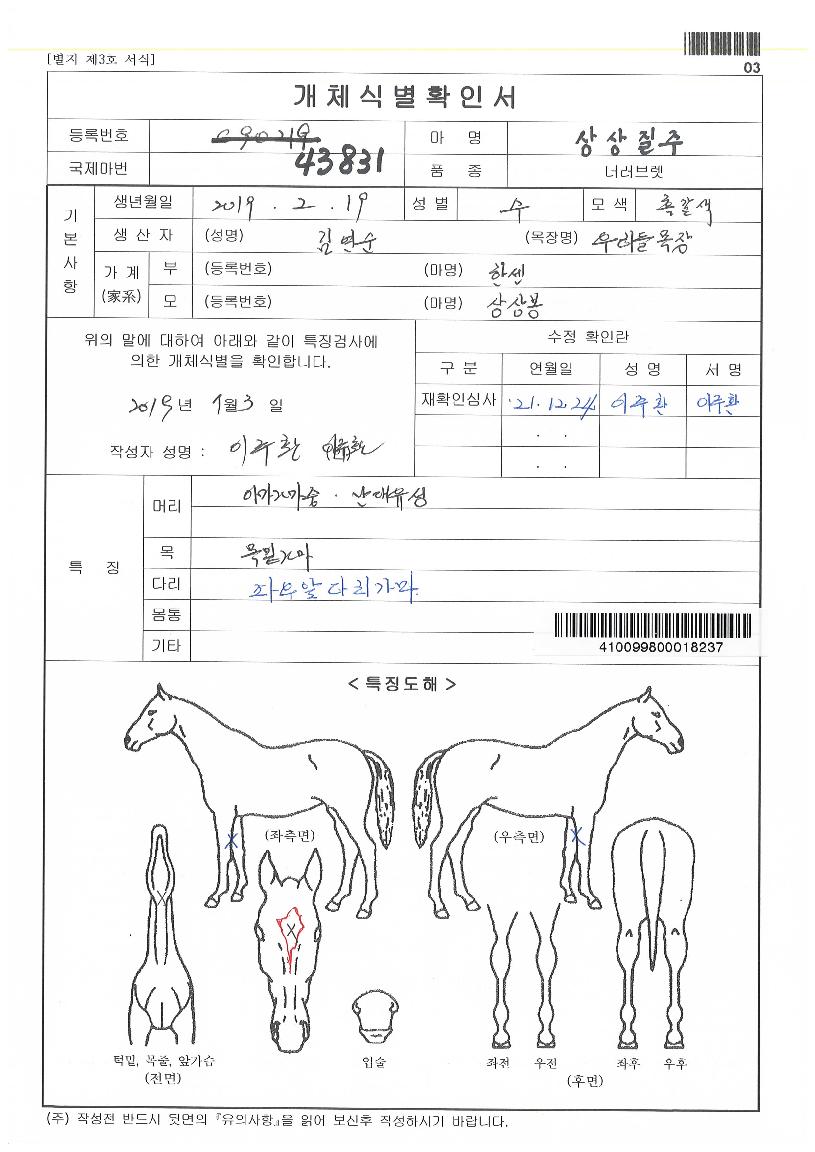 [별지 제3호 서식]
03
개체식별확인서
등록번호 090219 마 명 상상질주
국제마번 43831 품 종 너러브렛
기본사항
생년월일 2019 . 2 . 19 성별 수 모색 흑갈색
생산자 (성명) 김연순 (목장명) 우리들목장
가계 (家系) 부 (등록번호) (마명) 한센
모 (등록번호) (마명) 상상봉
위의 말에 대하여 아래와 같이 특징검사에
의한 개체식별을 확인합니다.
2019년 9월 3일
작성자 성명 : 이주환 이주환
수정 확인란
구분 연월일 성명 서명
재확인심사 '21.12.24 이주환 이주환
. .
. .
특 징
머리
목 목밑가마
다리 좌우앞다리가마
몸통
기타
410099800018237
< 특징도해 >
(좌측면) (우측면)
턱밑, 목줄, 앞가슴
(전면)
입술
좌전 우전 좌후 우후
(후면)
(주) 작성전 반드시 뒷면의 『유의사항』을 읽어 보신후 작성하시기 바랍니다.